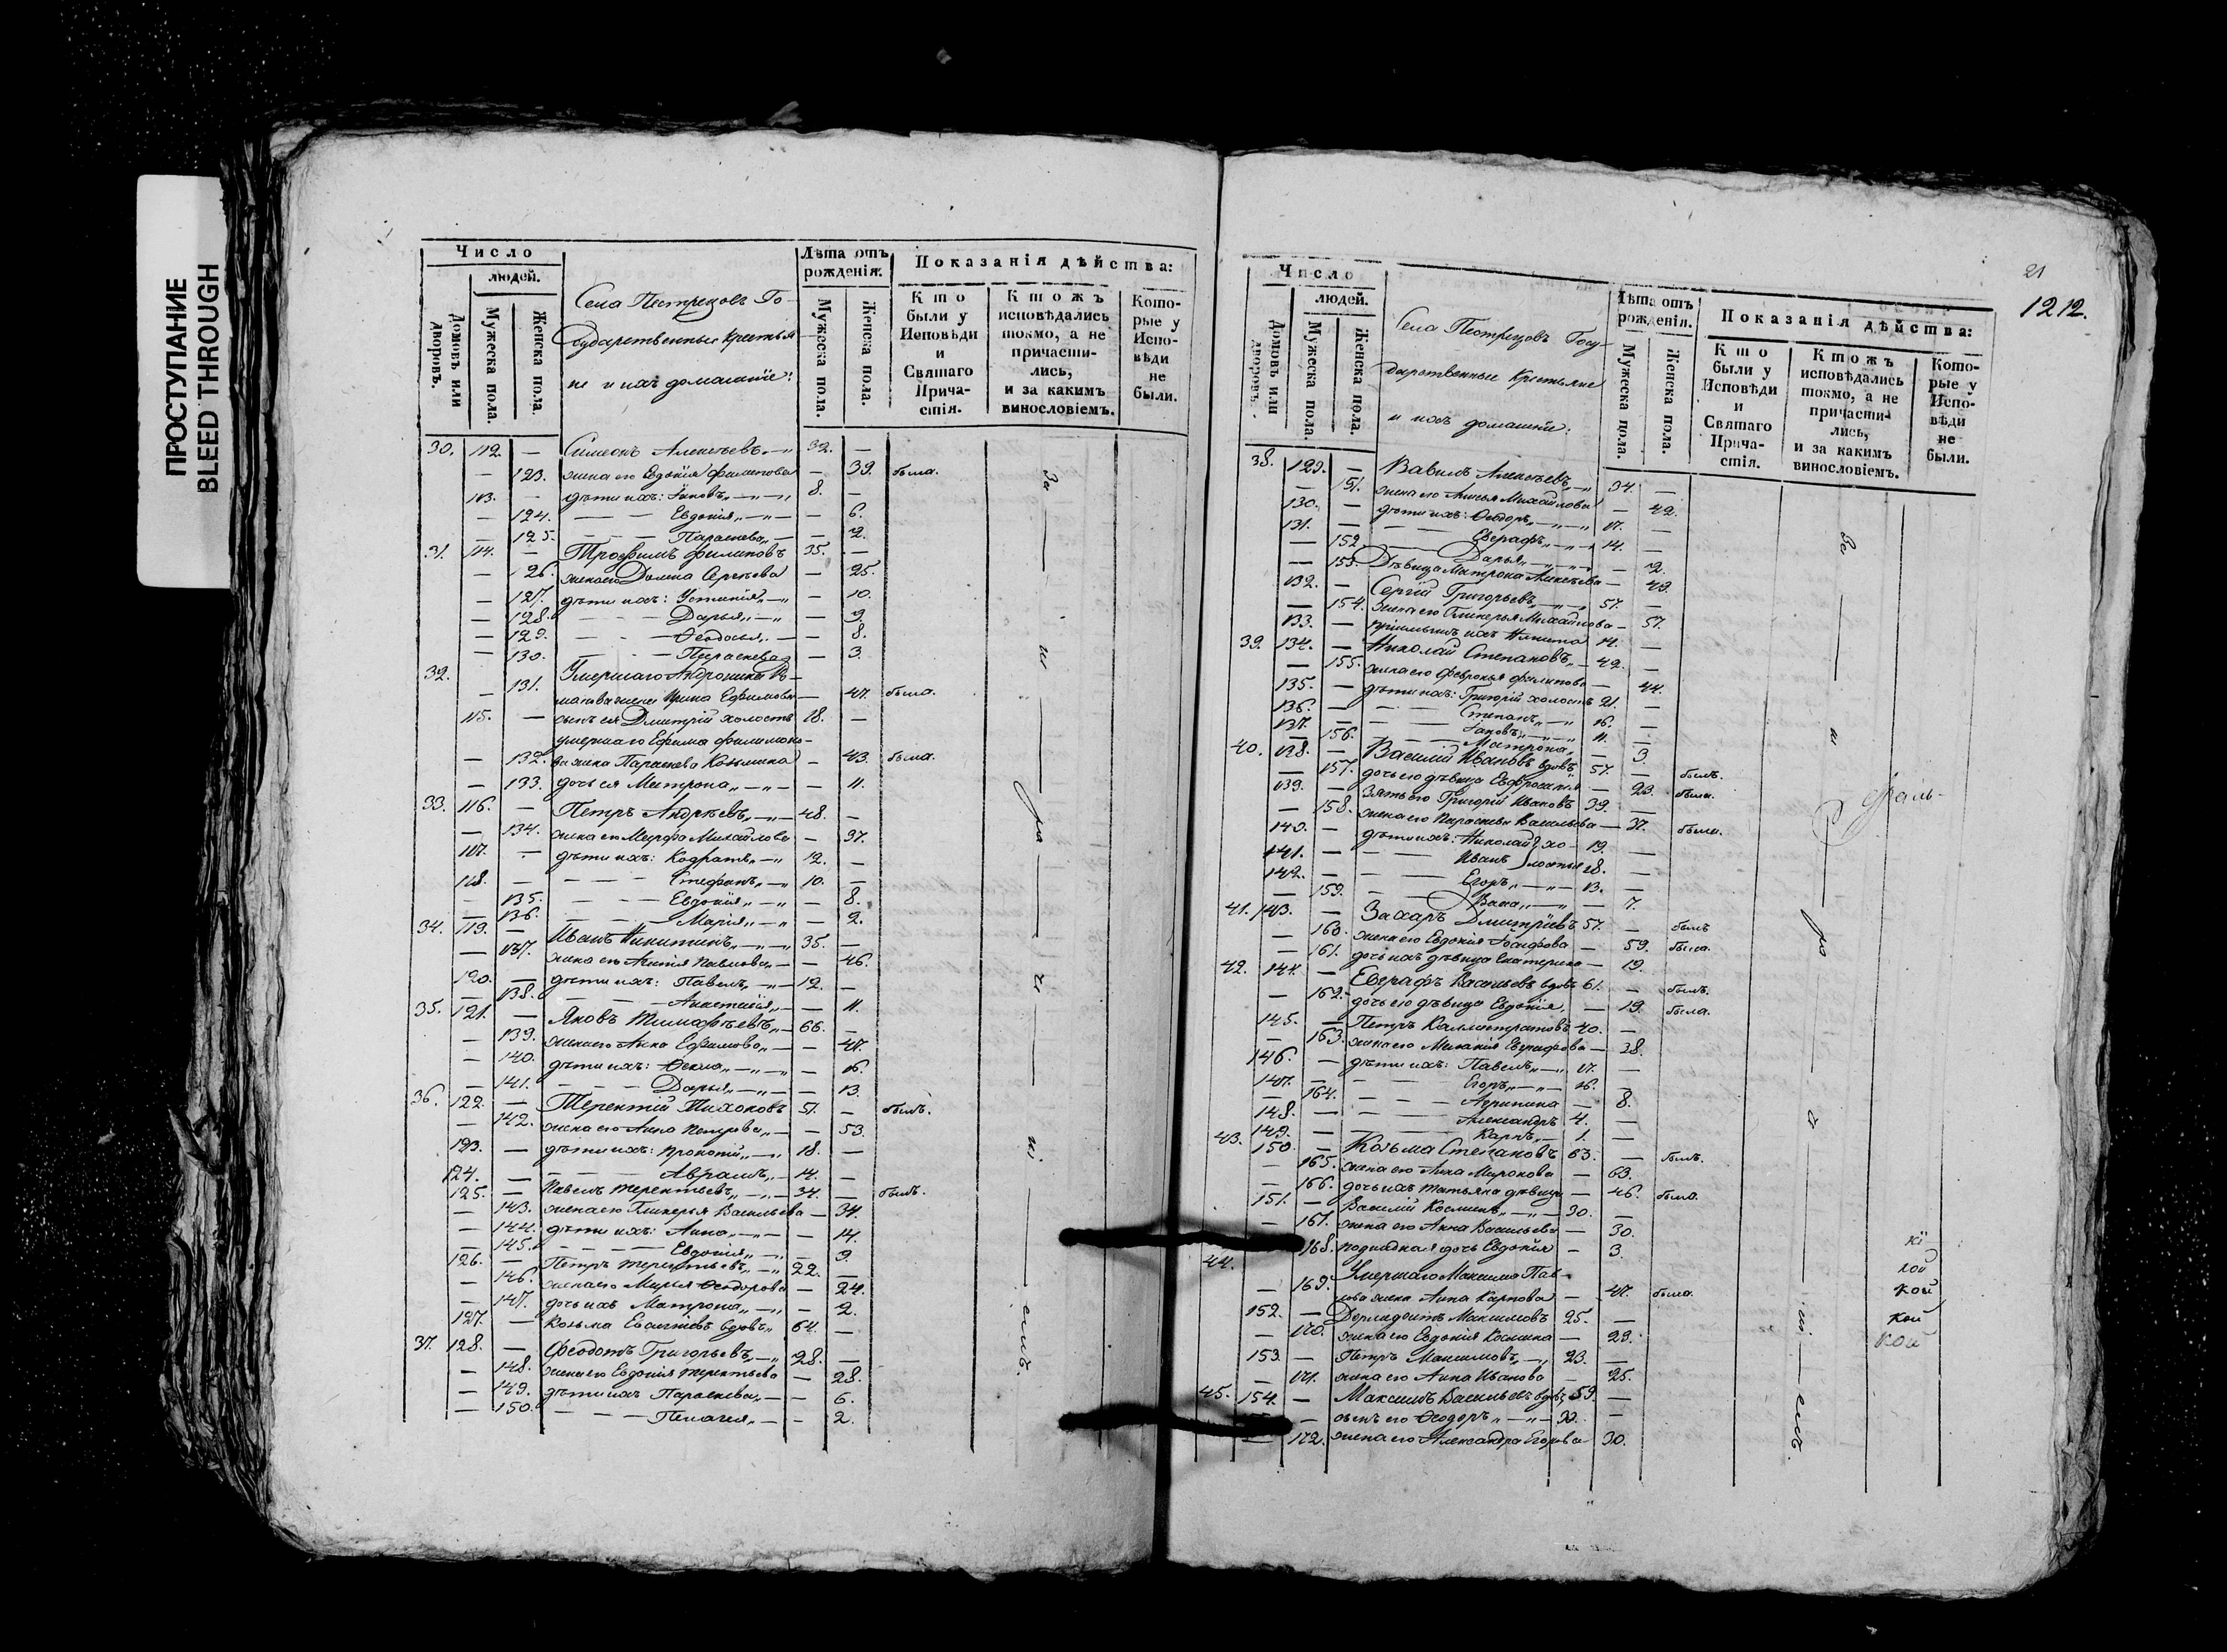 ПРОСТУПАНИЕ
BLEED THROUGH
Число
людей.
Домовъ или дворовъ.
Мужеска пола.
Женска пола.
Села Пестрецовъ Го-
сударственные крестья-
не и ихъ домашнiе:
Лѣта отъ рожденiя:
Мужеска пола.
Женска пола.
Показанiя дѣйства:
Кто были у Исповѣди и Святаго Прича-стiя.
Ктожъ исповѣдались токмо, а не причасти-лись, и за какимъ винословiемъ.
Кото-рые у Испо-вѣди не были.
30. 112. — Симеонъ Алексѣевъ 32. —
— 123. жена его Евдокiя Филипова — 39. была.
113. — дѣти ихъ: Iаковъ 8. —
— 124. Евдокiя — 6.
— 125. Параскева — 2.
31. 114. — Трофимъ Филиповъ 35. —
— 126. жена его Домна Сергѣева — 25.
— 127. дѣти ихъ: Устинiя — 10.
— 128. Дарья — 9.
— 129. Ѳеодосья — 8.
— 130. Параскева — 3.
32. Умершаго Андроника Ро-
— 131. манова жена Ирина Ефимова — 47. была.
115. — сынъ ея Дмитрiй холостъ 18. —
умершаго Ефима Филимоно-
— 132. ва жена Параскева Козьмина — 43. была.
— 133. дочь ея Матрона — 11.
33. 116. — Петръ Андрѣевъ 48. —
— 134. жена его Марфа Михайлова — 37.
117. — дѣти ихъ: Кодратъ 12. —
118. — Стефанъ 10. —
— 135. Евдокiя — 8.
— 136. Марiя — 2.
34. 119. — Иванъ Никитинъ 35. —
— 137. жена его Павлова — 46.
120. — дѣти ихъ: Павелъ 12. —
— 138. Анастасiя — 11.
35. 121. — Яковъ Тимофѣевъ 66. —
— 139. жена его Анна Ефимова — 47.
— 140. дѣти ихъ: Ѳекла — 16.
— 141. Дарья — 13.
36. 122. — Терентiй Тихоновъ 51. — былъ.
— 142. жена его Анна Петрова — 53.
123. — дѣти ихъ: Прокопiй 18. —
124. — Аврамъ 14. —
125. — Павелъ Терентьевъ 34. — былъ.
— 143. жена его Гликерья Васильева — 34.
— 144. дѣти ихъ: Анна — 14.
— 145. Евдокiя — 9.
126. — Петръ Терентьевъ 22. —
— 146. жена его Марья Ѳеодорова — 24.
— 147. дочь ихъ Матрона — 2.
127. — Козьма вдовъ 64. —
37. 128. — Ѳеодотъ Григорьевъ 28. —
— 148. жена его Евдокiя Терентьева — 28.
— 149. дѣти ихъ Параскева — 6.
— 150. Пелагея — 2.
21
1212.
Число
людей.
Домовъ или дворовъ.
Мужеска пола.
Женска пола.
Села Пестрецовъ Госу-
дарственные крестьяне
и ихъ домашнiе:
Лѣта отъ рожденiя.
Мужеска пола.
Женска пола.
Показанiя дѣйства:
Кто были у Исповѣди и Святаго Прича-стiя.
Ктожъ исповѣдались токмо, а не причасти-лись, и за какимъ винословiемъ.
Кото-рые у Испо-вѣди не были.
38. 129. — Вавилъ Алексѣевъ 34. —
— 151. жена его Анисья Михайлова — 42.
130. — дѣти ихъ: Ѳеодоръ 17. —
131. — Евграфъ 14. —
— 152. Дарья — 2.
— 153. Дѣвица Матрона Алексѣева — 49.
132. — Сергiй Григорьевъ 57. —
— 154. жена его Гликерья Михайлова — 57.
133. — прiимышъ ихъ Никита 14. —
39. 134. — Николай Степановъ 42. —
— 155. жена его Февронья Филипова — 44.
135. — дѣти ихъ: Григорiй холостъ 21. —
136. — Степанъ 16. —
137. — Iаковъ 11. —
— 156. Матрона — 3.
40. 138. — Василiй Ивановъ вдовъ 57. — былъ.
— 157. дочь его дѣвица Евфросинiя — 23. была.
139. — Зять его Григорiй Ивановъ 39. —
— 158. жена его Параскева Васильева — 37. была.
140. — дѣти ихъ: Николай } хо- 19. —
141. — Иванъ } лостые 18. —
142. — Егоръ 13. —
— 159. Васса — 7.
41. 143. — Захаръ Дмитрiевъ 57. — былъ
— 160. жена его Евдокiя Iосифова — 59. была.
— 161. дочь ихъ дѣвица Екатерина — 19.
42. 144. — Евграфъ Васильевъ вдовъ 61. — былъ.
— 162. дочь его дѣвица Евдокiя — 19. была.
145. — Петръ Каллистратовъ 40. —
— 163. жена его Меланiя Евграфова — 38.
146. — дѣти ихъ: Павелъ 17. —
147. — Егоръ 16. —
— 164. Агрипина — 8.
148. — Александръ 4. —
149. — Карпъ 1. —
43. 150. — Козьма Степановъ 63. — былъ.
— 165. жена его Анна Миронова — 63.
— 166. дочь ихъ Татьяна дѣвица — 46. была.
151. — Василiй Козминъ 30. —
— 167. жена его Анна Васильева — 30.
168. дочь Евдокiя — 3.
44. Умершаго Максима Пав-
— 169. лова жена Анна Карпова — 47. была.
152. — Дормидонтъ Максимовъ 25. —
— 170. жена его Евдокiя Козмина — 23.
153. — Петръ Максимовъ 23. —
— 171. жена его Анна Иванова — 25.
45. 154. — Максимъ Васильевъ вдовъ 59. —
— сынъ его Ѳеодоръ 32. —
— 172. жена его Александра Егорова 30.
кой
кой
кой